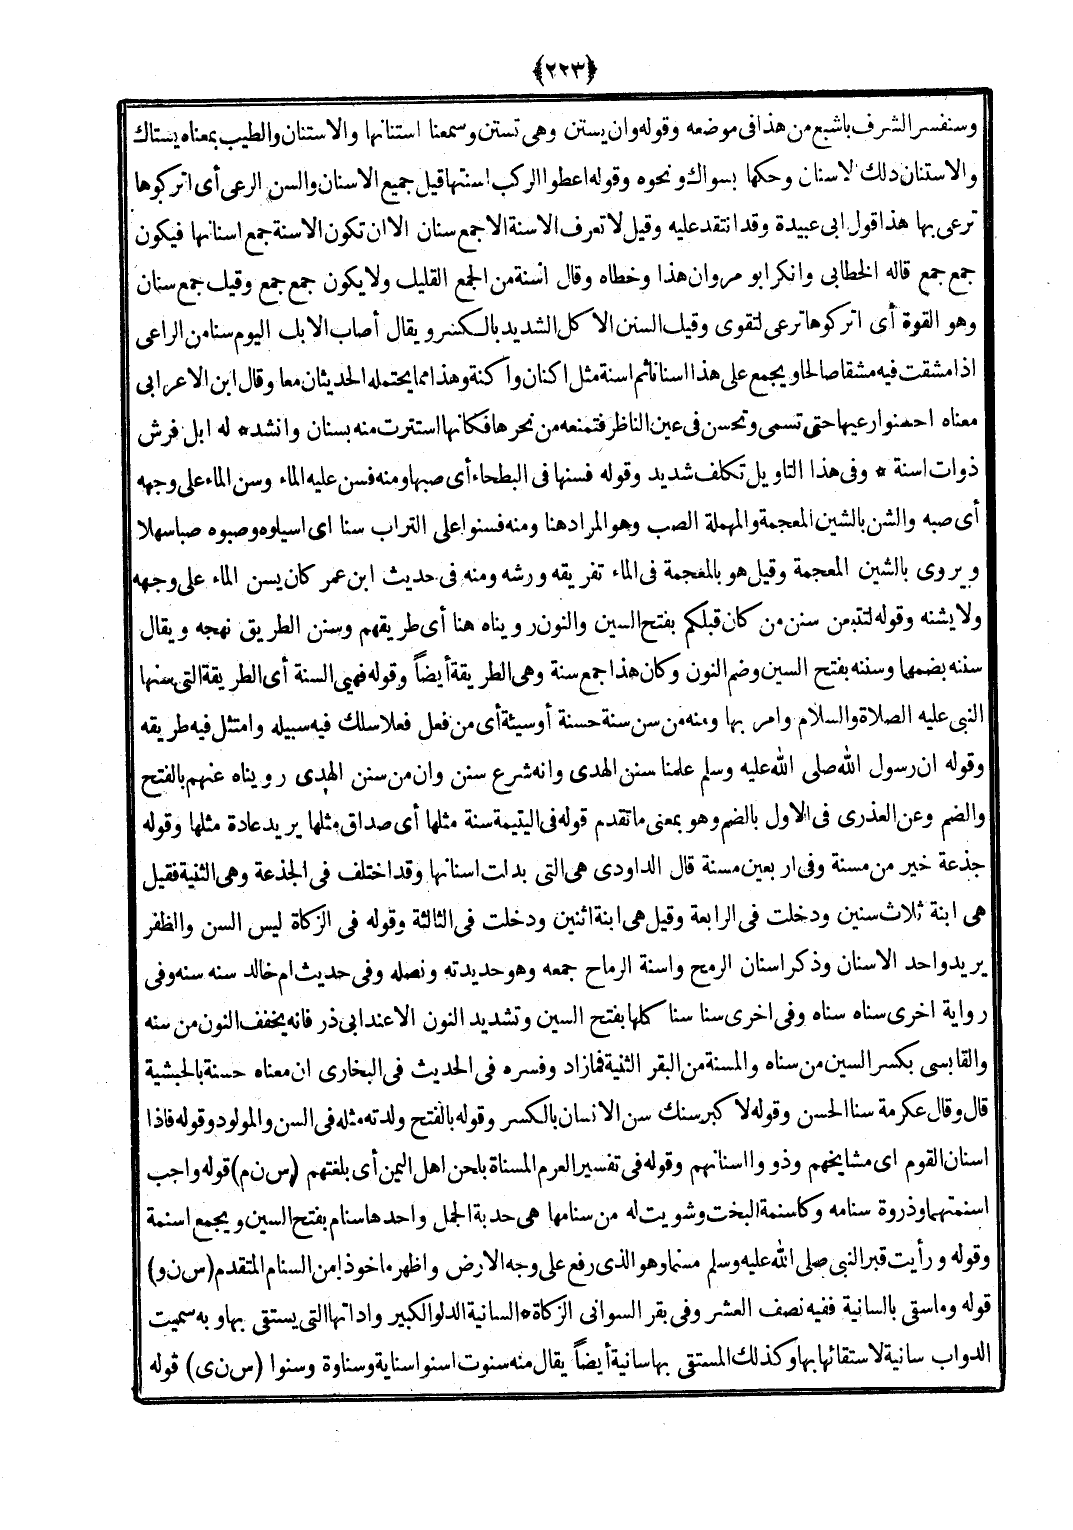 ﴿٢٢٣﴾
وسنفسر الشرف باشبع من هذا فى موضعه وقوله وان يستن وهى تستن وسمعنا استنانها والاستنان والطيب بمعناه يستاك
والاستنان دلك الاسنان وحكها بسواك ونحوه وقوله اعطوا الركب اسنتها قيل جميع الاسنان والسن الرعى أى اتركوها
ترعى بها هذا قول ابى عبيدة وقد انتقد عليه وقيل لا تعرف الاسنة الاجمع سنان الا ان تكون الاسنة جمع اسنانها فيكون
جمع جمع قاله الخطابى وانكر ابو مروان هذا وخطاه وقال اسنة من الجمع القليل ولا يكون جمع جمع وقيل جمع سنان
وهو القوة أى اتركوها ترعى لتقوى وقيل السنن الاكل الشديد بالكسر ويقال أصاب الابل اليوم سنا من الراعى
اذا مشقت فيه مشقا صالحا ويجمع على هذا اسنانا ثم اسنة مثل اكنان واكنة وهذا مما يحتمله الحديثان معا وقال ابن الاعرابى
معناه احسنوا رعيها حتى تسمى وتحسن فى عين الناظر فتمنعه من نحرها فكانها استترت منه بسنان وانشد * له ابل فرش
ذوات اسنة * وفى هذا التاويل تكلف شديد وقوله فسنها فى البطحاء أى صبها ومنه فسن عليه الماء وسن الماء على وجهه
أى صبه والشن بالشين المعجمة والمهملة الصب وهو المراد هنا ومنه فسنوا على التراب سنا اى اسيلوه وصبوه صبا سهلا
ويروى بالشين المعجمة وقيل هو بالمعجمة فى الماء تفريقه ورشه ومنه فى حديث ابن عمر كان يسن الماء على وجهه
ولا يشنه وقوله لتتبعن سنن من كان قبلكم بفتح السين والنون رويناه هنا أى طريقهم وسنن الطريق نهجه ويقال
سننه بضمها وسننه بفتح السين وضم النون وكان هذا جمع سنة وهى الطريقة أيضاً وقوله فهى السنة أى الطريقة التى سنها
النبى عليه الصلاة والسلام وامر بها ومنه من سن سنة حسنة أوسيئة أى من فعل فعلا سلك فيه سبيله وامتثل فيه طريقه
وقوله ان رسول الله صلى الله عليه وسلم علمنا سنن الهدى وانه شرع سنن وان من سنن الهدى رويناه عنهم بالفتح
والضم وعن العذرى فى الاول بالضم وهو بمعنى ما تقدم قوله فى اليتيمة سنة مثلها أى صداق مثلها يريد عادة مثلها وقوله
جذعة خير من مسنة وفى اربعين مسنة قال الداودى هى التى بدلت اسنانها وقد اختلف فى الجذعة وهى الثنية فقيل
هى ابنة ثلاث سنين ودخلت فى الرابعة وقيل هى ابنة اثنين ودخلت فى الثالثة وقوله فى الزكاة ليس السن والظفر
يريد واحد الاسنان وذكر اسنان الرمح واسنة الرماح جمعه وهو حديدته ونصله وفى حديث ام خالد سنه سنه وفى
رواية اخرى سناه سناه وفى اخرى سنا سنا كلها بفتح السين وتشديد النون الا عند ابى ذر فانه يخفف النون من سنه
والقابسى بكسر السين من سناه والمسنة من البقر الثنية فما زاد وفسره فى الحديث فى البخارى ان معناه حسنة بالحبشية
قال وقال عكرمة سنا الحسن وقوله لا كبر سنك سن الانسان بالكسر وقوله بالفتح ولدته مثله فى السن والمولود وقوله فاذا
اسنان القوم اى مشايخهم وذووا اسنانهم وقوله فى تفسير العرم المسناة بلحن اهل اليمن أى بلغتهم (س ن م) قوله واجب
اسنمتهما وذروة سنامه وكاسنمة البخت وشويت له من سنامها هى حدبة الجمل واحدها سنام بفتح السين ويجمع اسنمة
وقوله ورأيت قبر النبى صلى الله عليه وسلم مسنما وهو الذى رفع على وجه الارض واظهر ماخوذ من السنام المتقدم (س ن و)
قوله وما سقى بالسانية ففيه نصف العشر وفى بقر السوانى الزكاة * السانية الدلو الكبير واداتها التى يستقى بها وبه سميت
الدواب سانية لاستقائها بها وكذلك المستقى بها سانية أيضاً يقال منه سنوت اسنو اسناية وسناوة وسنوا (س ن ى) قوله